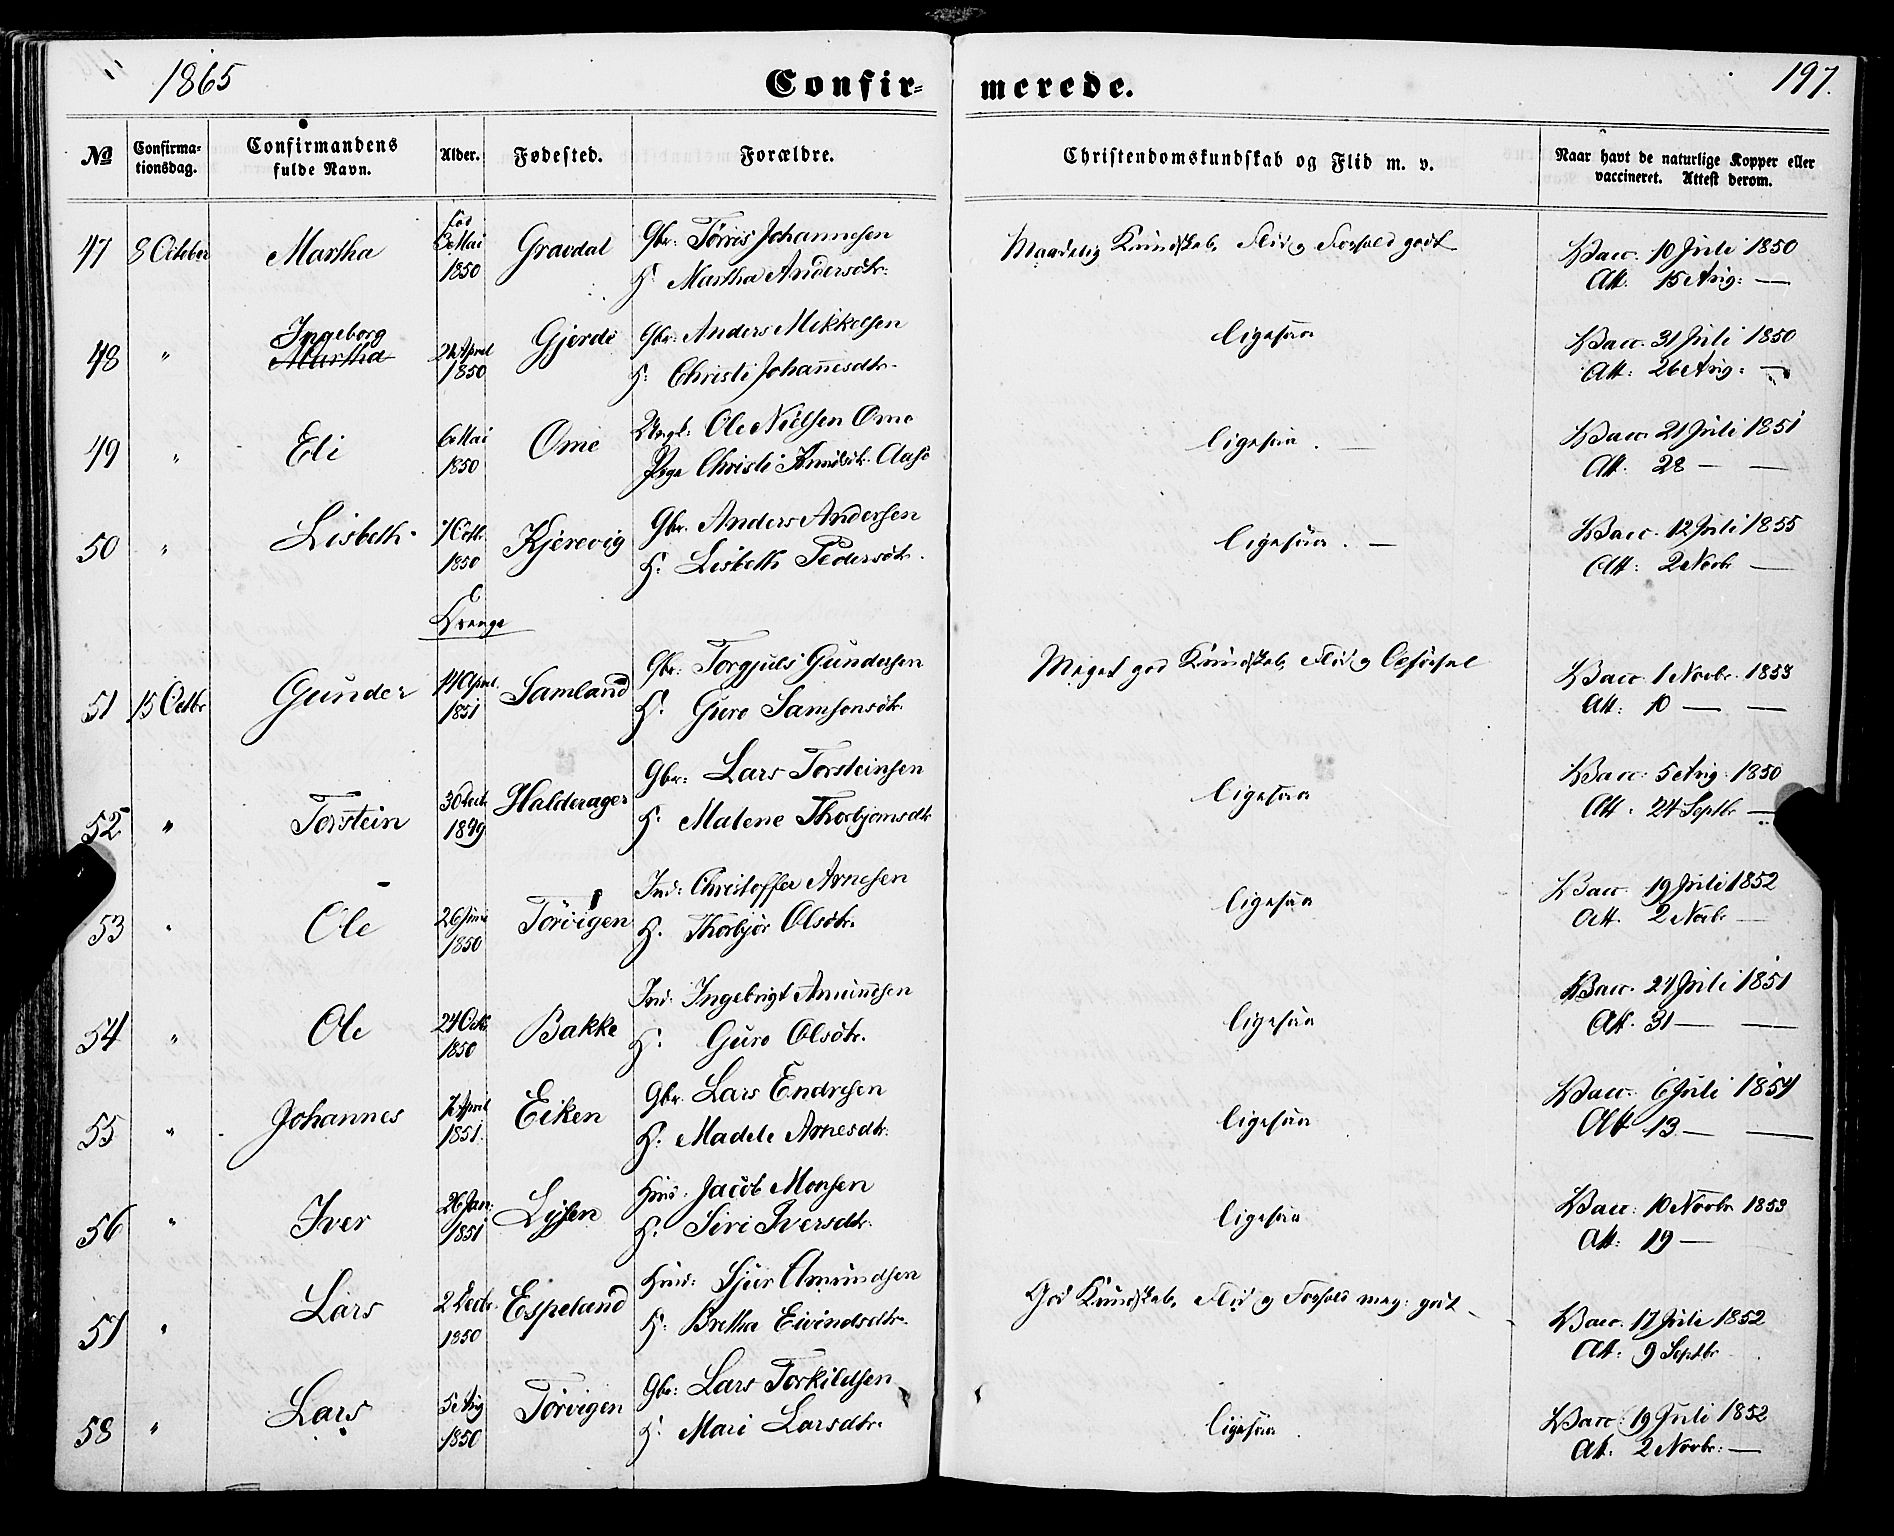 1865
Confirmerede.
197.
No
Confirmationsdag.
Confirmandens fulde Navn.
Alder.
Fødested.
Forældre.
Christendomskundskab og Flid m. v.
Naar havt de naturlige Kopper eller vaccineret. Attest derom.
47 8 October Martha fød Mai 1850 Gravdal Gbr: Tørris Johannesen Maadelig Kundskab, Flid og Forhold godt Vacc. 10 Juli 1850
H. Martha Andersdtr. Att. 15 Aug: —
48 " Ingeborg Martha April 1850 Gjerde Gbr: Anders Mikkelsen ligesaa Vacc. 31 Juli 1850
H. Christi Johannesdtr. Att: 26 Aug: —
49 " Eli 6 Mai 1850 Ome Ungk: Ole Nielsen Ome ligesaa . — Vacc. 21 Juli 1851
Pige Christi Knudsdtr. Aase Att. 28 — —
50 " Lisbeth 7 Octb. 1850 Kjerevig Gbr. Anders Andersen ligesaa . — Vacc. 12 Juli 1855
H. Lisbeth Pedersdtr. Att: 2 Novbr —
Drenge
51 15 Octbr Gunder 14 April 1851 Samland Gbr: Torgjuls Gundersen Meget god Kundskab, Flid og Opførsel Vacc. 1 Novbr. 1853
H. Guro Samsonsdtr. Att: 10 — —
52 " Torstein 30 Decb. 1849 Halderager Gbr: Lars Torsteinsen ligesaa Vacc: 5 Aug: 1850
H. Malene Thorbjørnsdtr Att. 24 Septbr —
53 " Ole 26 Juni 1850 Torvigen Ind: Christoffer Arnesen ligesaa Vacc. 19 Juli 1852
H. Thorbjør Olsdtr. Att. 2 Novbr —
54 " Ole 24 Octb. 1850 Bakke Ind: Ingebrigt Amundsen ligesaa Vacc. 24 Juli 1851
H. Guro Olsdtr. Att. 31 — —
55 " Johannes 7 April 1851. Eiken Gbr. Lars Endresen ligesaa Vacc. 6 Juli 1854
H. Madele Arnesdtr. Att 13 — —
56 " Iver 26 Jan: 1851 Lysen Huusd. Jacob Monsen ligesaa Vacc: 10 Novbr 1853
H. Siri Iversdtr. Att: 19 —
57 " Lars 2 Decbr. 1850 Espeland Huusd: Sjur Amundsen God Kundskab, Flid og Forhold meg: godt Vacc. 17 Juli 1852
H. Bretha Eivindsdtr. Att: 9 Septbr
58 " Lars 5 Aug 1850 Torvigen Gbr: Lars Torkildsen ligesaa . Vacc: 19 Juli 1852
H. Mari Larsdtr. Att. 2 Novbr: —